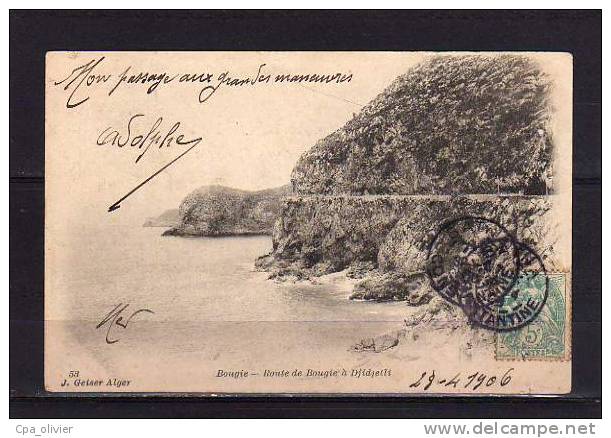 Mon passage aux grandes manœuvres
Adolphe
Mer
CONSTANTINE
5c
53
J. Geiser Alger
Bougie - Route de Bougie à Djidjelli
29-4 1906
Cpa_olivier
www.delcampe.net